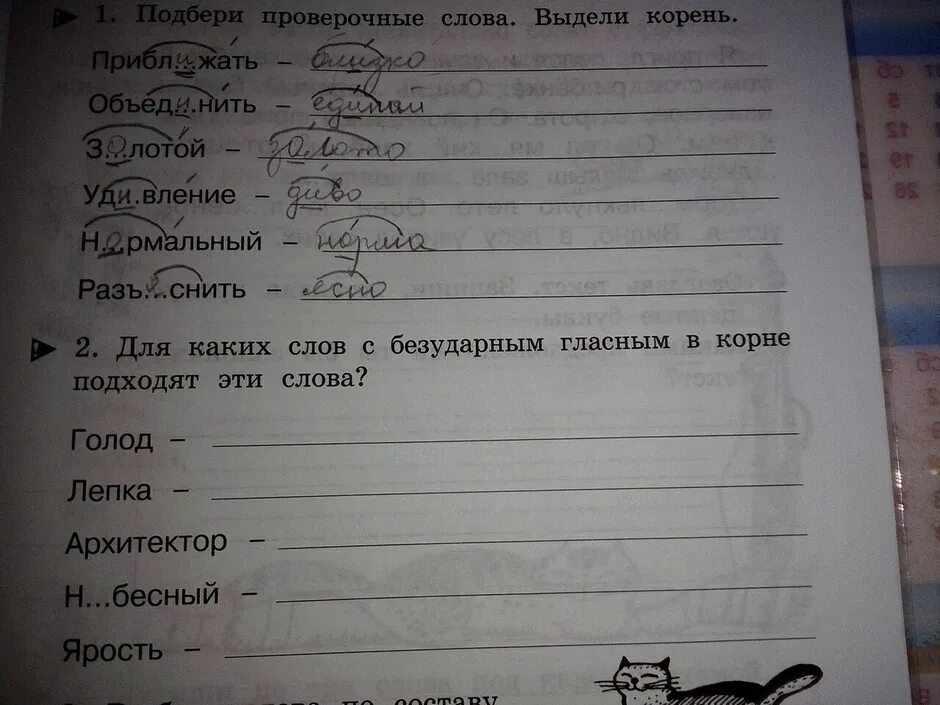 1. Подбери проверочные слова. Выдели корень.
Прибл...и...жать – близко
Объед...и...нить – единый
З...о...лотой – золото
Уд...и...вление – диво
Н...о...рмальный – норма
Разъ...я...снить – ясно
2. Для каких слов с безударным гласным в корне
подходят эти слова?
Голод –
Лепка –
Архитектор –
Н...бесный –
Ярость –
по составу